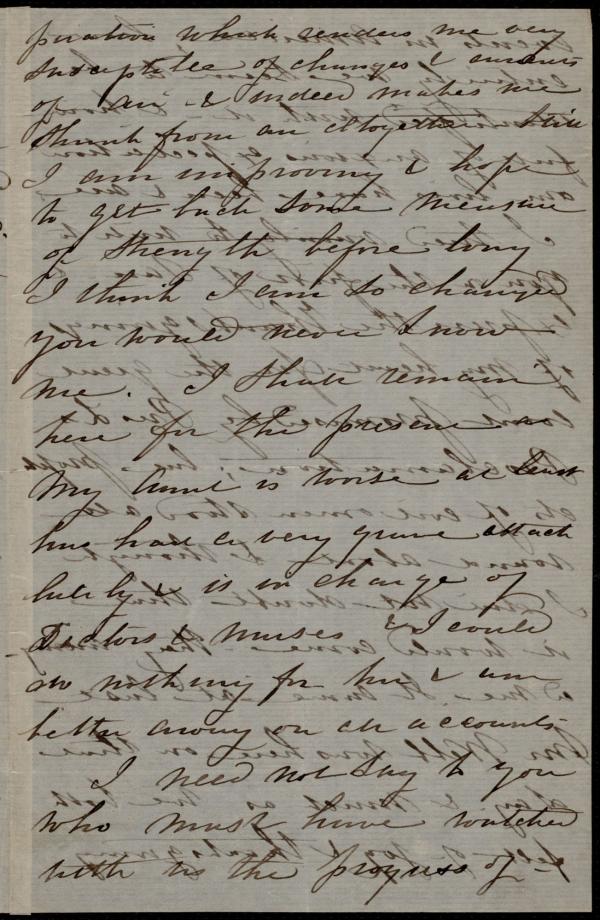 piration which renders me very
susceptible of changes & currents
of air & indeed makes me
shrink from an altogether. Still
I am improving & hope
to get back some measure
of strength before long
I think I am so changed
you would never know
me. I shall remain
here for the present as
my Aunt is worse at least
has had a very grave attack
lately & is in charge of
Doctors & nurses & I could
do nothing for her & am
better away on all accounts.
I need not say to you
who must have watched
with us the progress of